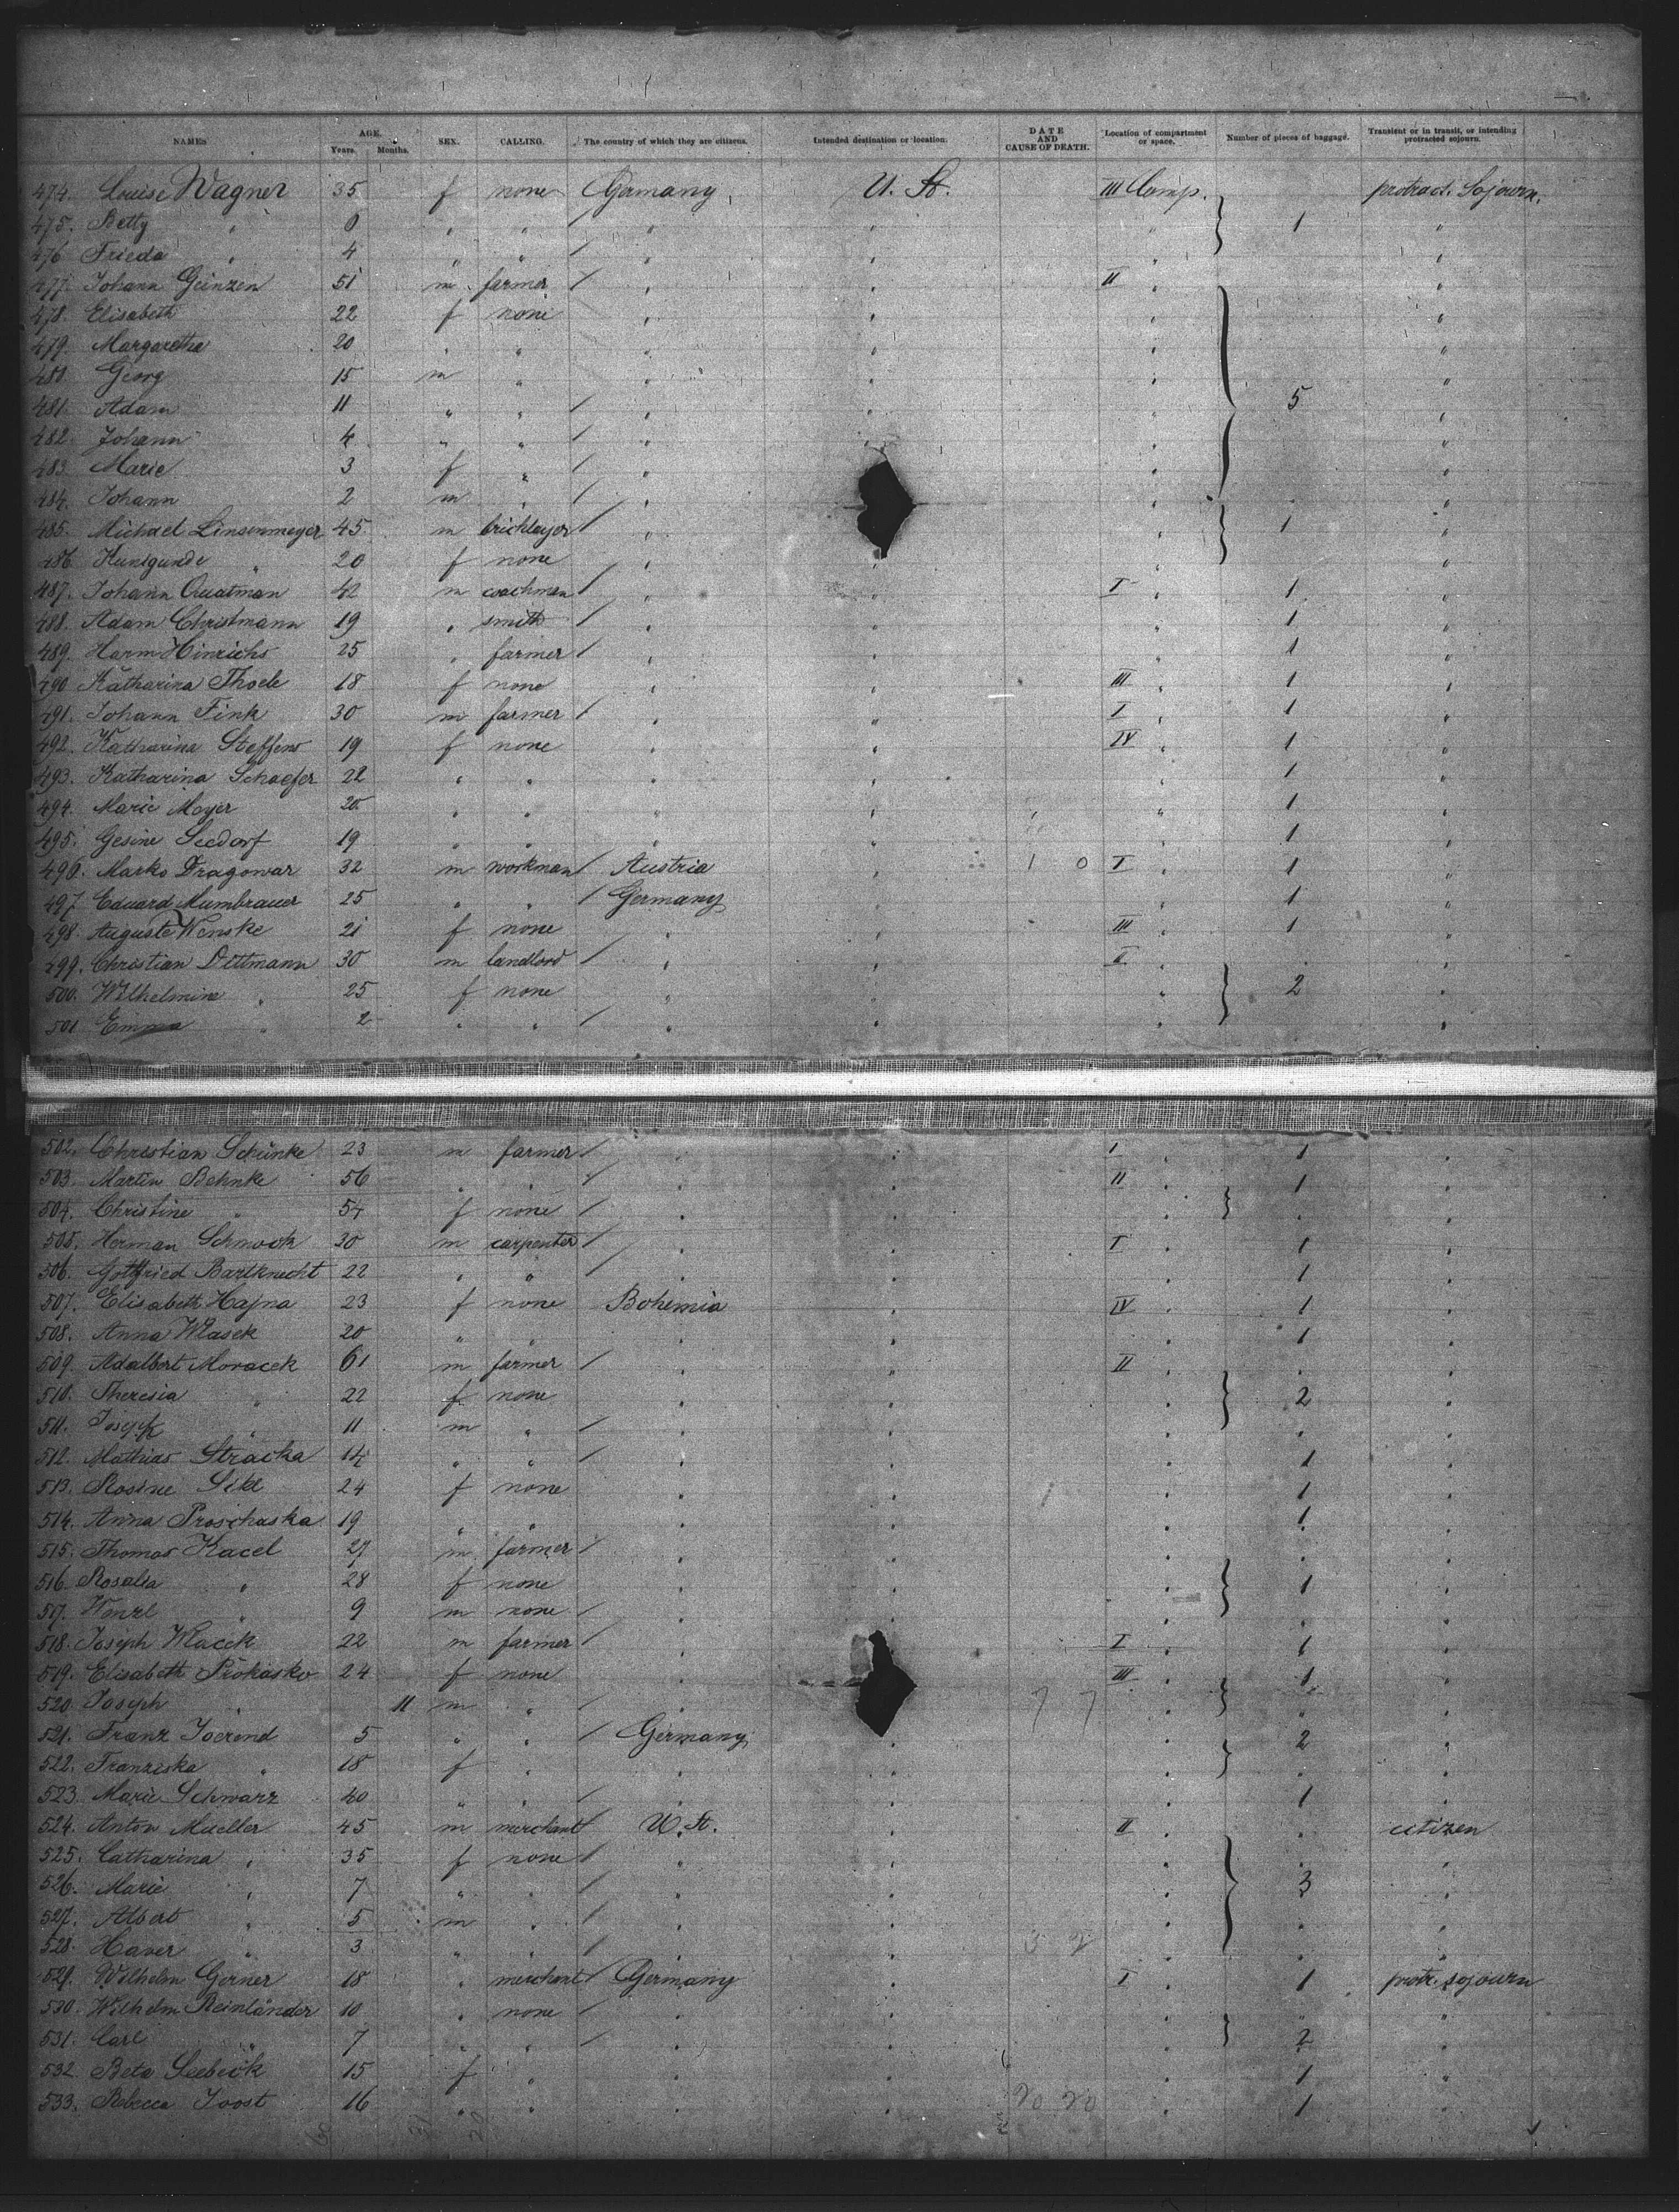 NAMES AGE. Years. Months. SEX. CALLING. The country of which they are citizens. Intended destination or location. DATE AND CAUSE OF DEATH. Location of compartment or space. Number of pieces of baggage. Transient or in transit, or intending protracted sojourn.
474. Louise Wagner 35 f none Germany U. St. III Comp. protract. Sojourn.
475. Betty " " " " " " 1 "
476 Frieda " 4 " " " " " "
477. Johann Geinzen 51 m farmer / " " II " "
478. Elisabeth 22 f none " " " "
479. Margarethe 20 " " " " " "
480. Georg 15 m " " " " "
481. Adam 11 " " / " " " 5 "
482. Johann 4 " " / " " " "
483. Marie 3 f " / " " "
484. Johann 2 m " / " " "
485. Michael Linsenmeyer 45 m bricklayer / " " 1 "
486. Kunigunde " 20 f none " " " "
487. Johann Quatman 42 m coachman / " " I " 1 "
488. Adam Christmann 19 " smith / " " " 1 "
489. Harm Hinrichs 25 " farmer / " " " 1 "
490 Katharina Thoele 18 f none " " III " 1 "
491. Johann Fink 30 m farmer / " " I " 1 "
492. Katharina Steffens 19 f none " " IV " 1 "
493. Katharina Schaefer 22 " " " " " 1 "
494. Marie Meyer 20 " " " " " 1 "
495. Gesine Seedorf 19 " " " " " 1 "
496. Marko Dragowar 32 m workman / Austria " 1 0 I " 1 "
497. Eduard Mumbrauer 25 " " / Germany " " 1 "
498. Auguste Wenske 21 f none " " III " 1 "
499. Christian Dittmann 30 m landlord / " " II " "
500. Wilhelmine " 25 f none " " " 2 "
501 Emma " 2 " " / " " " "
502. Christian Schünke 23 m farmer / " " I " 1 "
503. Martin Behnke 56 " " / " " II " 1 "
504. Christine " 54 f none / " " " " "
505. Herman Schmook 30 m carpenter / " " I " 1 "
506. Gottfried Bartknecht 22 " " / " " " 1 "
507. Elisabeth Hajna 23 f none Bohemia " IV " 1 "
508. Anna Wlasek 20 " " " " " 1 "
509. Adalbert Moracek 61 m farmer / " " II " " "
510. Theresia " 22 f none " " " 2 "
511. Joseph " 11 m " / " " " " "
512. Mathias Stracka 14 " " / " " " 1 "
513. Rosine Sikl 24 f none " " " 1 "
514. Anna Proschaska 19 " " " " " 1 "
515. Thomas Kacel 27 m farmer / " " " " "
516. Rosalia " 28 f none " " " 1 "
517. Wenzl " 9 m none / " " " " "
518. Joseph Wlacek 22 m farmer / " I " 1 "
519. Elisabeth Prokasko 24 f none " III " 1 "
520. Joseph " 11 m " / " 7 7 " " "
521. Franz Joerend 5 " " / Germany " " 2 "
522. Franziska " 18 f " " " " " "
523. Marie Schwarz 40 " " / " " " 1 "
524. Anton Mueller 45 m merchant / U. St. " II " " citizen
525. Catharina " 35 f none / " " " " "
526. Marie " 7 " " / " " " 3 "
527. Albert " 5 m " / " " " " "
528. Haver " 3 " " / " " " " "
529. Wilhelm Gerner 18 " merchant / Germany " I " 1 protr. sojourn
530. Wilhelm Reinländer 10 " none / " " " " "
531. Carl " 7 " " / " " " 2 "
532. Beta Seebeck 15 f " " " " 1 "
533. Rebecca Joost 16 " " " " 20 20 " 1 "